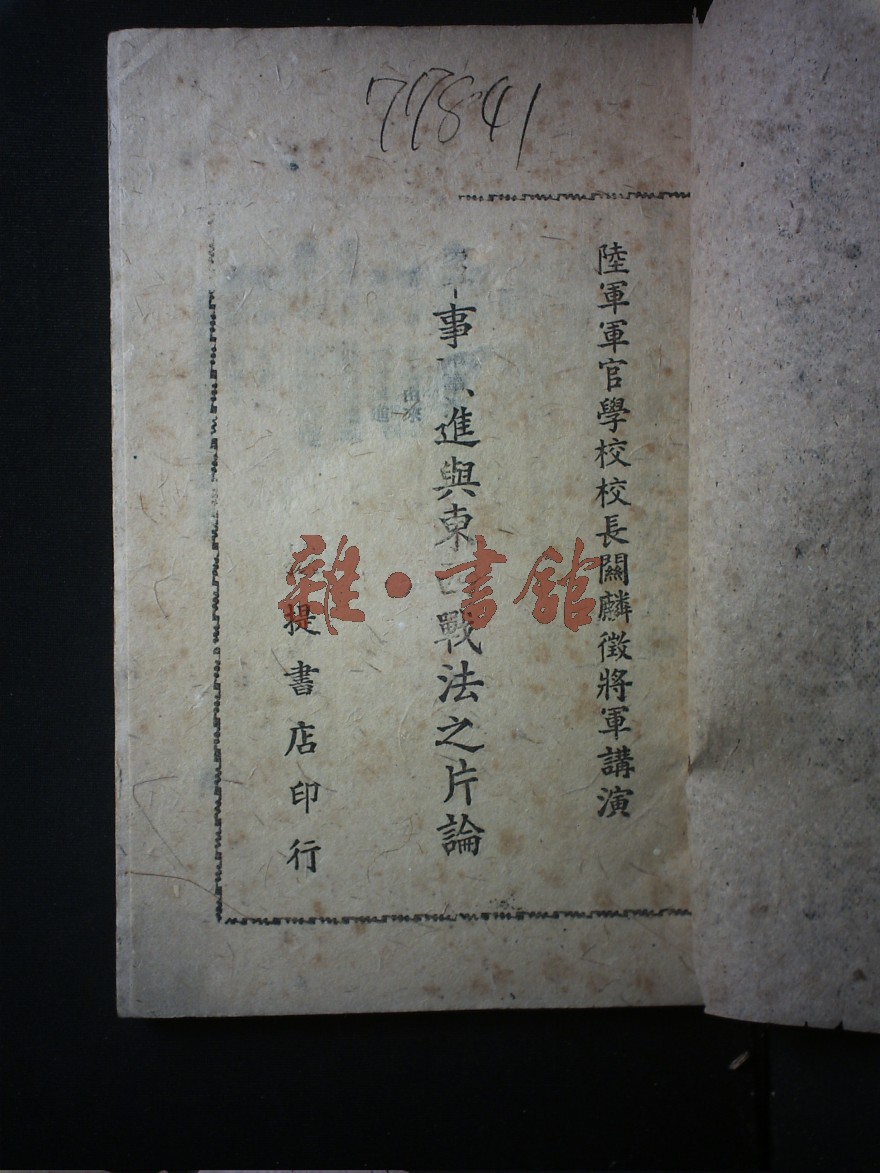 77841
陸軍軍官學校校長關麟徵將軍講演
事進與東戰法之片論
提書店印行
雜·書館